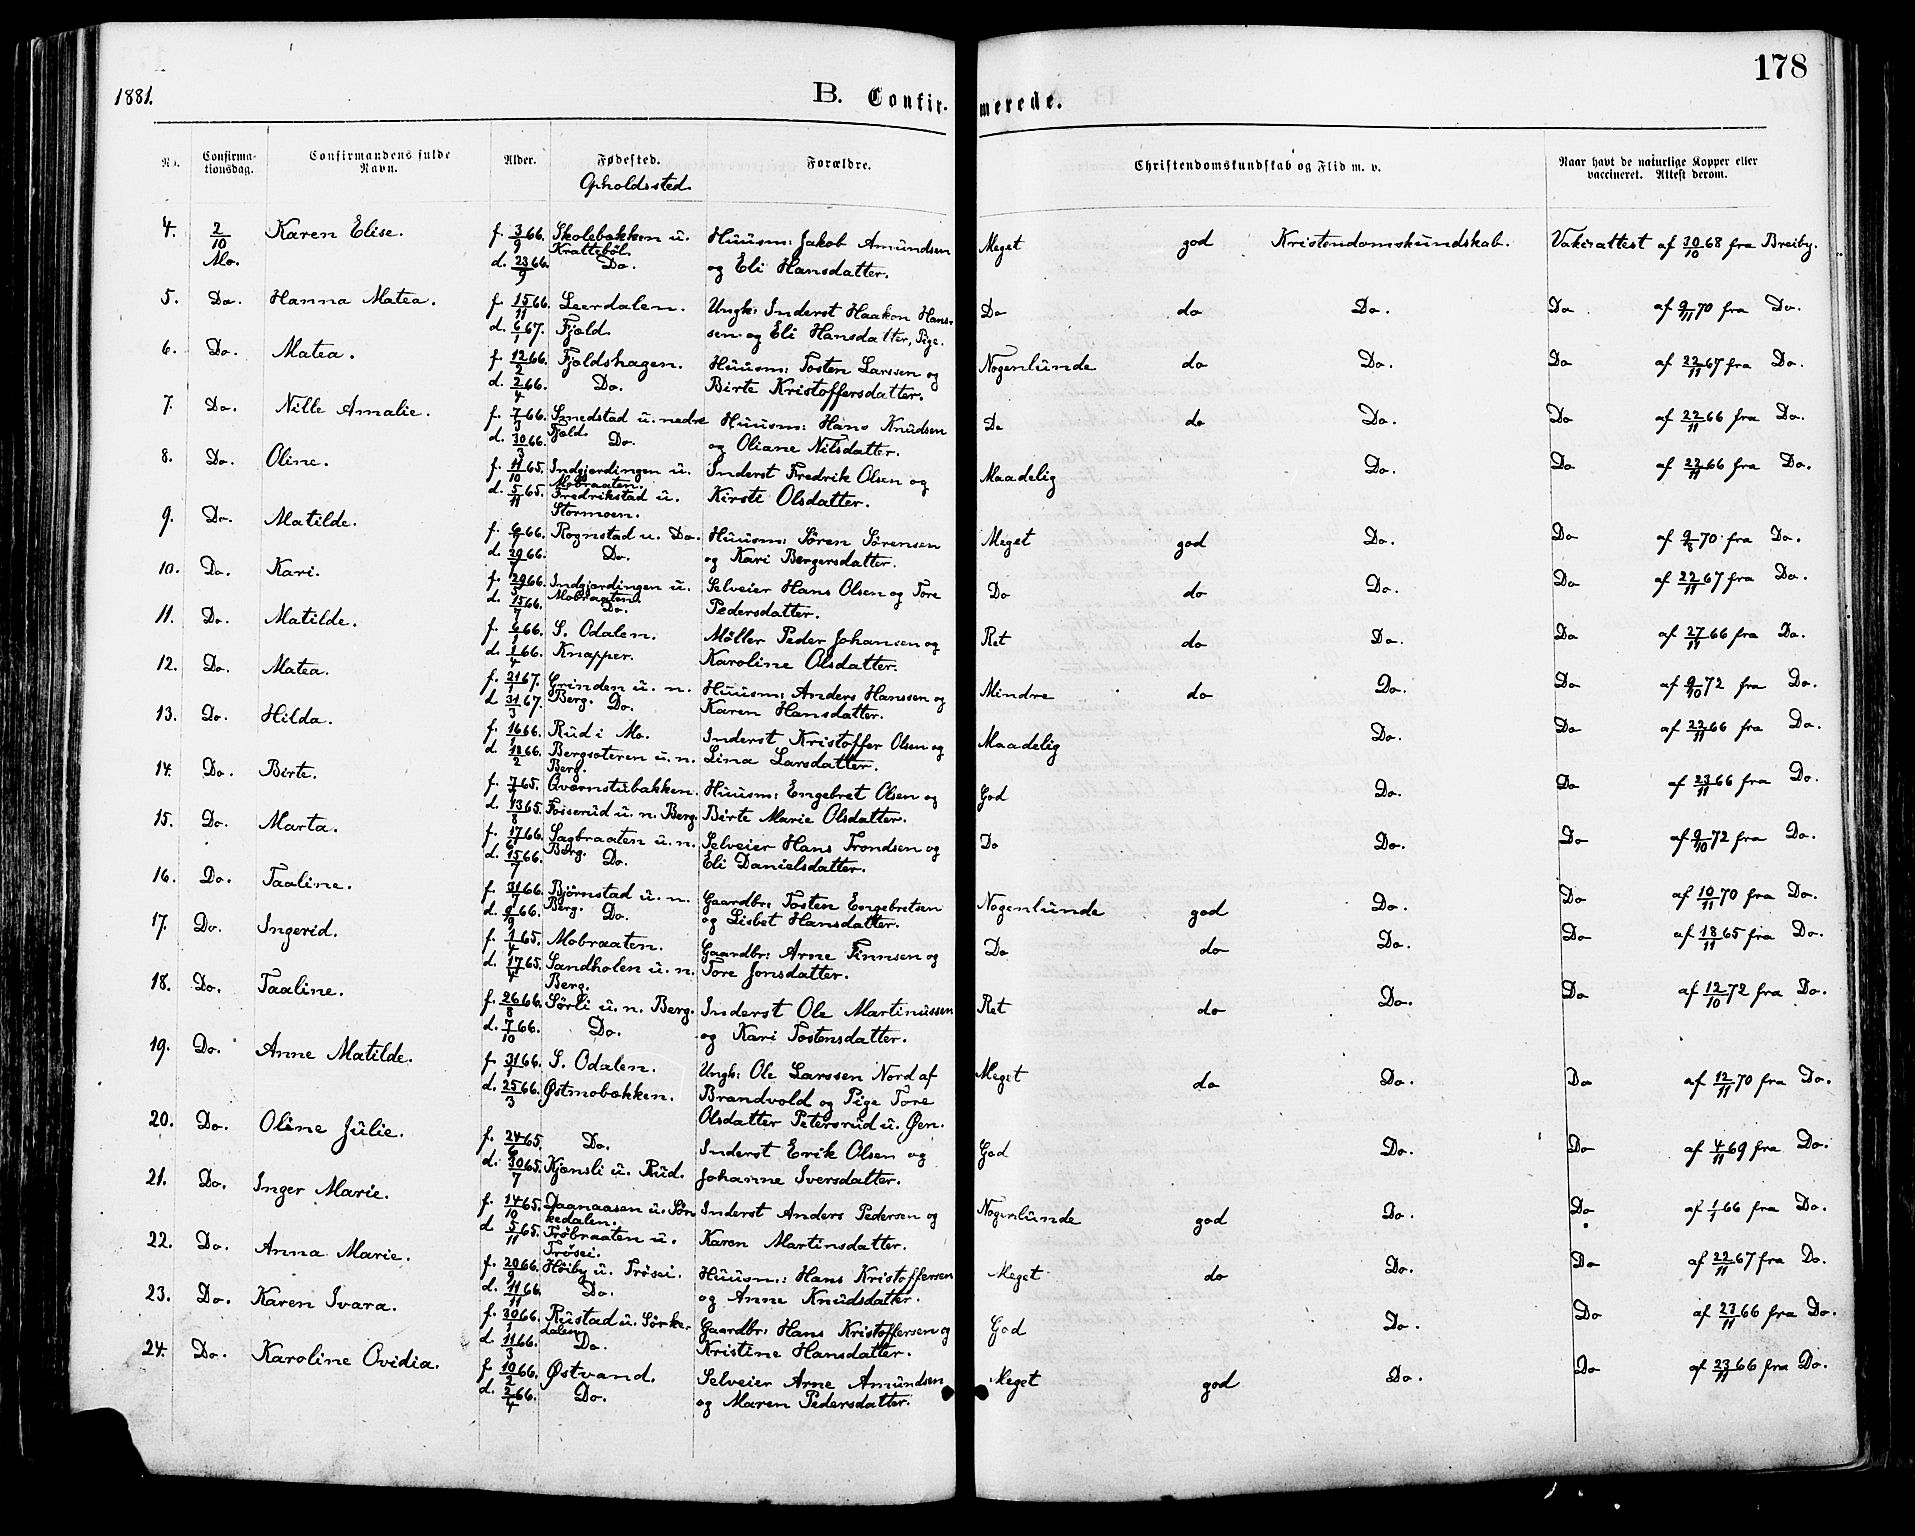 178
1881.
B. Confir-merede.
No. Confirma-tionsdag. Confirmandens fulde Navn. Alder. Fødested. Forældre. Christendomskundskab og Flid m. v. Naar havt de naturlige Kopper eller vaccineret. Attest derom.
Opholdssted.
4. 2/10 Karen Elise. f. 3/9 66. Skolebakken u. Huusm: Jakob Amundsen Meget god Kristendomskundskab. Vaksattest af 30/10 68 fra Breiby.
Mo. Krattebøl.
d. 23/9 66. Do. og Eli Hansdatter.
5. Do. Hanna Matea. f. 15/11 66. Leerdalen. Ungk: Inderst Haakon Hans- Do do Do. Do af 9/11 70 fra Do.
d. 6/1 67. Fjeld. sen og Eli Hansdatter, Pige.
6. Do. Matea. f. 12/2 66. Fjeldshagen. Huusm: Tosten Larssen og Nogenlunde do Do. Do af 22/11 67 fra Do.
d. 2/4 66. Do. Birte Kristoffersdatter.
7. Do. Nille Amalie. f. 7/1 66. Smedstad u. nedre Huusm: Hans Knudsen Do do Do. Do af 22/11 66 fra Do.
Fjeld.
d. 30/3 66. Do. og Oliane Nilsdatter.
8. Do. Oline. f. 11/10 65. Indgjerdingen u. Inderst Fredrik Olsen og Maadelig Do. Do af 22/11 66 fra Do.
Mobraaten.
d. 5/11 65. Fredrikstad u. Kirsti Olsdatter.
Stormoen.
9. Do. Matilde. f. 66. Rognstad u. Do. Huusm: Søren Sørensen Meget god Do. Do af 9/8 70 fra Do.
d. 29 66. Do. og Kari Bergersdatter.
10. Do. Kari. f. 29/5 66. Indgjerdingen u. Selveier Hans Olsen og Tore Do do Do. Do af 22/11 67 fra Do.
Mobraaten.
d. 15/7 66. Do. Pedersdatter.
11. Do. Matilde. f. 6/1 66. S. Odalen. Møller Peder Johansen og Ret do Do. Do af 27/11 66 fra Do.
d. 1/4 66. Knapper. Karoline Olsdatter.
12. Do. Matea. f. 21/1 67. Grinden u. n. Huusm: Anders Hanssen og Mindre do Do. Do af 9/10 72 fra Do.
Berg.
d. 31/3 67. Do. Karen Hansdatter.
13. Do. Hilda. f. 16/1 66. Rud i Mo. Inderst Kristoffer Olsen og Maadelig Do. Do af 22/11 66 fra Do.
d. 18/2 66. Bergsæteren u. n. Lina Larsdatter.
Berg.
14. Do. Birte. f. 7/7 65. Qværnstubakken. Huusm: Engebret Olsen og God Do. Do af 23/11 66 fra Do.
d. 13/8 65. Fosserud u. n. Berg. Birte Marie Olsdatter.
15. Do. Marta. f. 17/6 66. Sagbraaten u. n. Selveier Hans Trondsen og Do Do. Do af 9/10 72 fra Do.
Berg.
d. 15/7 66. Do. Eli Danielsdatter.
16. Do. Taaline. f. 31/7 66. Bjørnstad u. n. Gaardbr: Tosten Engebretsen Nogenlunde god Do. Do af 10/11 70 fra Do.
Berg.
d. 9/9 66. Do. og Lisbet Hansdatter.
17. Do. Ingerid. f. 1/4 65. Mobraaten. Gaardbr: Arne Finnsen og Do do Do. Do af 18/11 65 fra Do.
d. 17/4 65. Sandholen u. n. Tore Jonsdatter.
Berg.
18. Do. Taaline. f. 26/8 66. Sørli u. n. Berg. Inderst Ole Martinussen Ret do Do. Do af 12/10 72 fra Do.
d. 7/10 66. Do. og Kari Tostensdatter.
19. Do. Anne Matilde. f. 31/1 66. S. Odalen. Ungk: Ole Larssen Nord af Meget do Do. Do af 12/11 70 fra Do.
d. 25/3 66. Østmobækken. Brandvold og Pige Tore
Olsdatter Petersrud u. Øen.
20. Do. Oline Julie. f. 24/6 65. Do. Inderst Erik Olsen og God Do. Do af 4/11 69 fra Do.
d. 30/7 65. Kjensli u. Rud. Johanne Iversdatter.
21. Do. Inger Marie. f. 14/10 65. Daanaasen u. Sør- Inderst Anders Pedersen og Nogenlunde god Do. Do af 1/1 66 fra Do.
kedalen.
d. 5/11 65. Trøbraaten u. Karen Martinsdatter.
Trøsei.
22. Do. Anna Marie. f. 20/9 66. Høiby u. Trøsei. Huusm.: Hans Kristoffersen Meget do Do. Do af 22/11 67 fra Do.
d. 11/11 66. Do. og Anne Knudsdatter.
23. Do. Karen Ivara. f. 30/1 66. Rustad u. Sørke- Gaardbr: Hans Kristoffersen og God Do. Do af 23/11 66 fra Do.
dalen.
d. 11/3 66. Do. Kristine Hansdatter.
24. Do. Karoline Ovidia. f. 10/2 66. Østvand. Selveier Arne Amundsen Meget god Do. Do af 23/11 66 fra Do.
d. 2/4 66. Do. og Maren Pedersdatter.